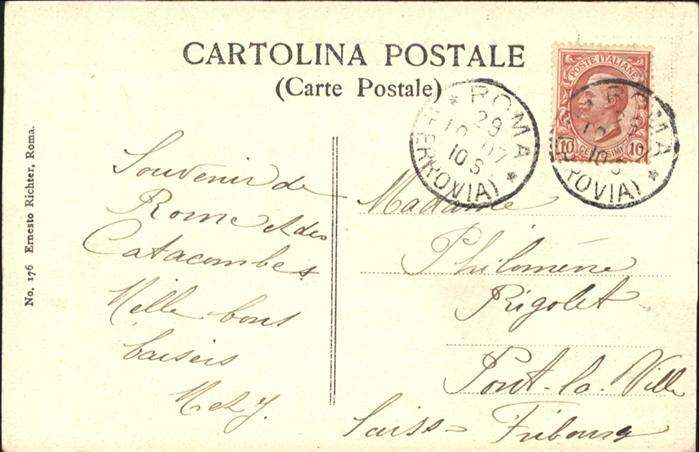 CARTOLINA POSTALE
(Carte Postale)
POSTE ITALIANE
10 CENTESIMI 10
* ROMA *
29
10 07
10 S
(FERROVIA)
* ROMA *
10 S
(FERROVIA)
No. 176 Ernesto Richter, Roma.
Souvenir de
Rome et des
Catacombes
Mille bons
baisers
Madame
Philomène
Rigolet
Pont-la-Ville
Suiss= Fribourg